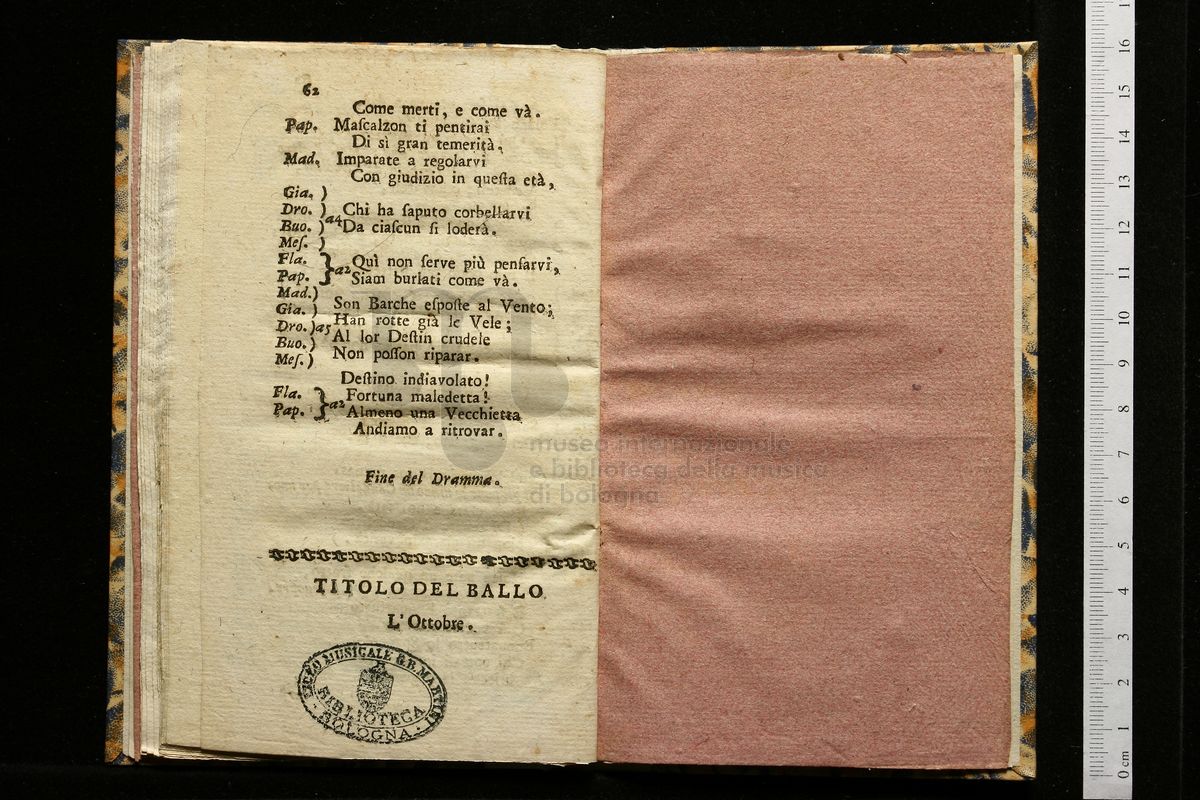 62
Come merti, e come và.
Pap. Maſcalzon ti pentirai
Di sì gran temerità.
Mad. Imparate a regolarvi
Con giudizio in queſta età,
Gia. )
Dro. ) a4 Chi ha ſaputo corbellarvi
Buo. ) Da ciaſcun ſi loderà.
Meſ. )
Fla. } a2 Quì non ſerve più penſarvi,
Pap. } Siam burlati come và.
Mad.)
Gia. ) Son Barche eſpoſte al Vento;
Dro. )a5 Han rotte già le Vele;
Buo. ) Al lor Deſtin crudele
Meſ. ) Non poſſon riparar.
Deſtino indiavolato!
Fla. } a2 Fortuna maledetta!
Pap. } Almeno una Vecchietta
Andiamo a ritrovar.
Fine del Dramma.
TITOLO DEL BALLO
L'Ottobre.
LICEO MUSICALE G.B. MARTINI
BIBLIOTECA
BOLOGNA
museo internazionale
e biblioteca della musica
di bologna
16
15
14
13
12
11
10
9
8
7
6
5
4
3
2
1
0 cm